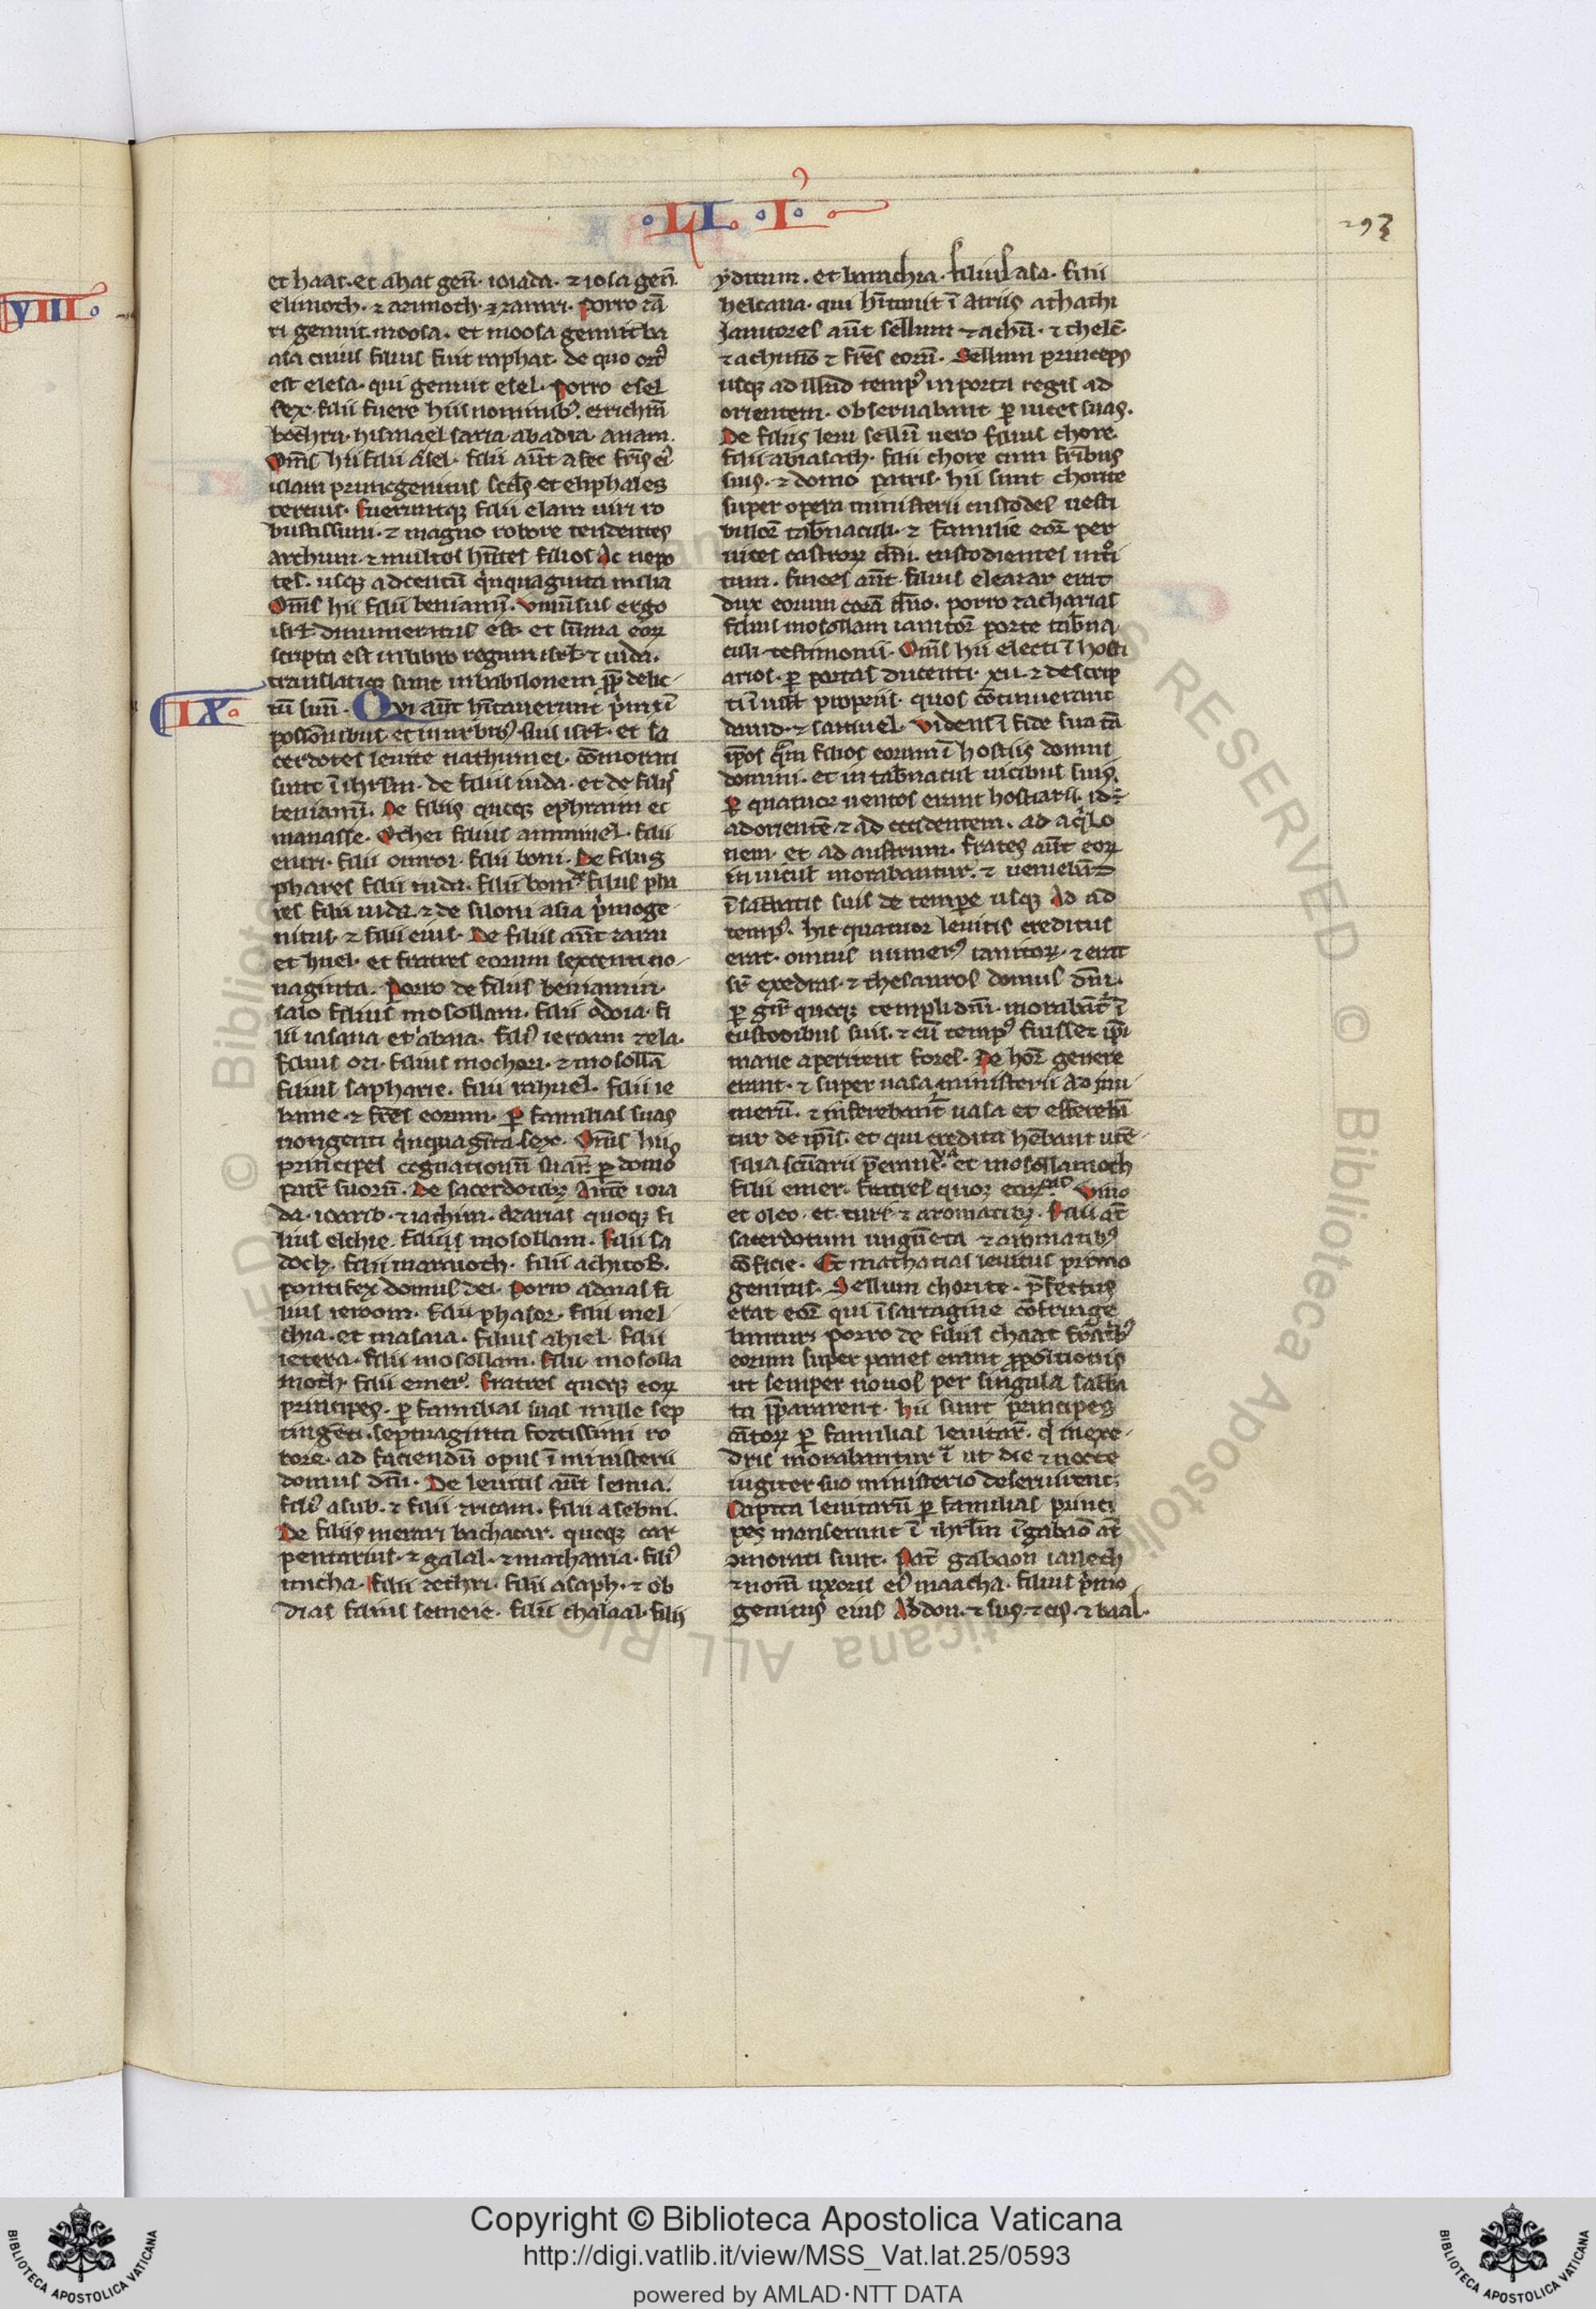 LI. I.
293
VIII.
et haaz. et ahaz geñ. ioiada. ⁊ ioiada geñ.
elimoth. ⁊ azimoth. ⁊ zamri. Porro zā
ri genuit moosa. et moosa genuit ba
ana cuius filius fuit raphat. de quo ortꝰ
est elesa. qui genuit esel. Porro esel
sex filii fuere hiis nominibꝫ.
bochru. hismael saria. abadia. anam.
Om̄s hii filii asel. filii aūt asec fr̄is eiꝰ
ulam primogenitus. et eliphales
tercius. Fueruntqꝫ filii elam uiri ro
bustissimi. ⁊ magno robore tendentes
archum. ⁊ multos hn̄tes filios Ac nepo
tes. usqꝫ ad centū quinquaginta milia
Om̄s hii filii beniamin. Vniuersus ergo
isrl̄ dinumeratus est. et sūma eoꝝ
scripta est in libro regum isrl̄ ⁊ iuda.
translatiqꝫ sunt in babilonem ꝓp̄ delic
tū suū. Qvi aūt hītauerunt
IX.
possionibus. et in urbibꝰ suis isrl̄. et sa
cerdotes leuite nathinnei. cōmorati
sunt ī ihrlm̄. de filiis iuda. et de filiis
beniamin. De filiis quoqꝫ ephraim et
manasse. Othei filius ammiuel. filii
emri. filii omroi. filii boni. De filiis
phares filii iuda. filii boni de filiis pha
res filii iuda. ⁊ de siloni asia p̄moge
nitus. ⁊ filii eius. De filiis aūt zara
et huel. et fratres eorum sexcenti no
naginta. Porro de filiis beniamin.
salo filius mosollam. filii odoia. fi
lii asana et iabana. filiꝰ ieroam ⁊ ela.
filius ozi. filius mochori. ⁊ mosollā
filius saphatie. filii rahuel. filii ie
banie. ⁊ fr̄es eorum. ꝑ familias suas
nongenti quinquaginta sex. Om̄s hii
principes cognationū suaꝝ ꝑ domos
patrū suorū. De sacerdotibꝫ autē ioia
da. ioarib. ⁊ iachim. Azarias quoqꝫ fi
lius elchie. filius mosollam. filii sa
doch. filii maraioth. filii achitob.
pontifex domus dei. Porro adaias fi
lius ieroam. filii phasor. filii mel
chia. et masaia. filius ahiel. filii
iezera. filii mosollam. filii mosolla
moth. filii emer. Fratres quoqꝫ eoꝝ
principes. ꝑ familias suas mille sep
tingēti. septuaginta fortissimi ro
bore. ad faciendū opus ī ministerii
domus dn̄i. De leuitis aūt semia.
filiꝰ asub. ⁊ filii ezricam. filii asebni.
De filiis merari bachacar. quoqꝫ car
pentarius. ⁊ galal. ⁊ mathania. filiꝰ
micha. filii zechri. filii asaph. ⁊ ob
dias filius semeie. filii chalaal. filii
yditum. et barachia. filius asa. filii
helcana. qui hītauit ī atriis
Janitores aūt sellum ⁊ achū. ⁊
⁊ achimā ⁊ fr̄es eorū. Sellum princeps
usqꝫ ad illud tempꝰ in porta regis ad
orientem. obseruabant ꝑ uices suas.
De filiis leui sellū uero filius chore.
filii abiasaph. filii chore cum fr̄ibus
suis. ⁊ domo patris. hii sunt chorite
super opera ministerii custodes uesti
buloꝝ tab̄naculi. ⁊ familie eoꝝ per
uices castroꝝ dn̄i. custodientes introi
tum. finees aūt filius eleazar erat
dux eorum corā dn̄o. porro zacharias
filius mosollam ianitor porte tab̄na
culi testimonii. Om̄s hii electi ī hosti
arios. ꝑ portas ducenti. xii. ⁊ descrip
ti ī uill̄ propriis. quos cōstituerunt
dauid. ⁊ samuel. videns ī fide sua tā
ip̄os quam filios eorum ī hostiis domus
domini. et in tab̄nacul uicibus suis.
ꝑ quatuor uentos erant hostiarii. id ē
ad orientē ⁊ ad occidentem. ad aqlo
nem. et ad austrum. Fratres aūt eoꝝ
in uicul morabantur. ⁊ ueniebāt
ī sabbatis suis de tempore usqꝫ Ad ad
tempꝰ. hic quatuor leuitis creditus
erat. omnis numerꝰ ianitoꝝ. ⁊ erāt
sr̄ exedras. ⁊ thesauros domus dn̄i.
ꝑ gir̄ quoqꝫ templi dn̄i. morabāt ī
custodibus suis. ⁊ cū tempꝰ fuisset ip̄i
mane aperirent fores. De hoꝝ genere
erant. ⁊ super uasa ministerii ad nu
merū. ⁊ inferebant uasa et
tur de ip̄is. et qui credita hēbant utē
silia scūarii et mosollamoth
filii emer. fratres quoqꝫ vino
et oleo. et ture ⁊ aromatibꝫ. Filii aūt
sacerdotum ungueta ⁊ aromatibꝰ
cōficie. Et mathatias leuitus primo
genitus. Sellum chorite. p̄fectus
erat eoꝝ qui ī sartagine cōfringe
bantur. Porro de filiis chaat fratribꝰ
eorum super panes erant ꝓpōitionis
ut semper nouos per singula sabba
ta p̄pararent. hii sunt principes
cātoꝝ ꝑ familias leuitar. q̄ in exe
dris morabantur ī ut die ⁊ nocte
iugiter suo ministerio deseruirent.
Capita leuitarū ꝑ familias princi
pes manserunt ī ihrlm̄ ī gabaō aūt
ɔmorati sunt. Pat̄ gabaon iaiech
⁊ nom̄ uxoris eiꝰ maacha. filius p̄mo
genitus eius Abdon. ⁊ sus. ⁊ cis. ⁊ baal.
© Biblioteca Apostolica Vaticana ALL RIGHTS RESERVED
Copyright © Biblioteca Apostolica Vaticana
http://digi.vatlib.it/view/MSS_Vat.lat.25/0593
powered by AMLAD·NTT DATA
BIBLIOTECA APOSTOLICA VATICANA
BIBLIOTECA APOSTOLICA VATICANA